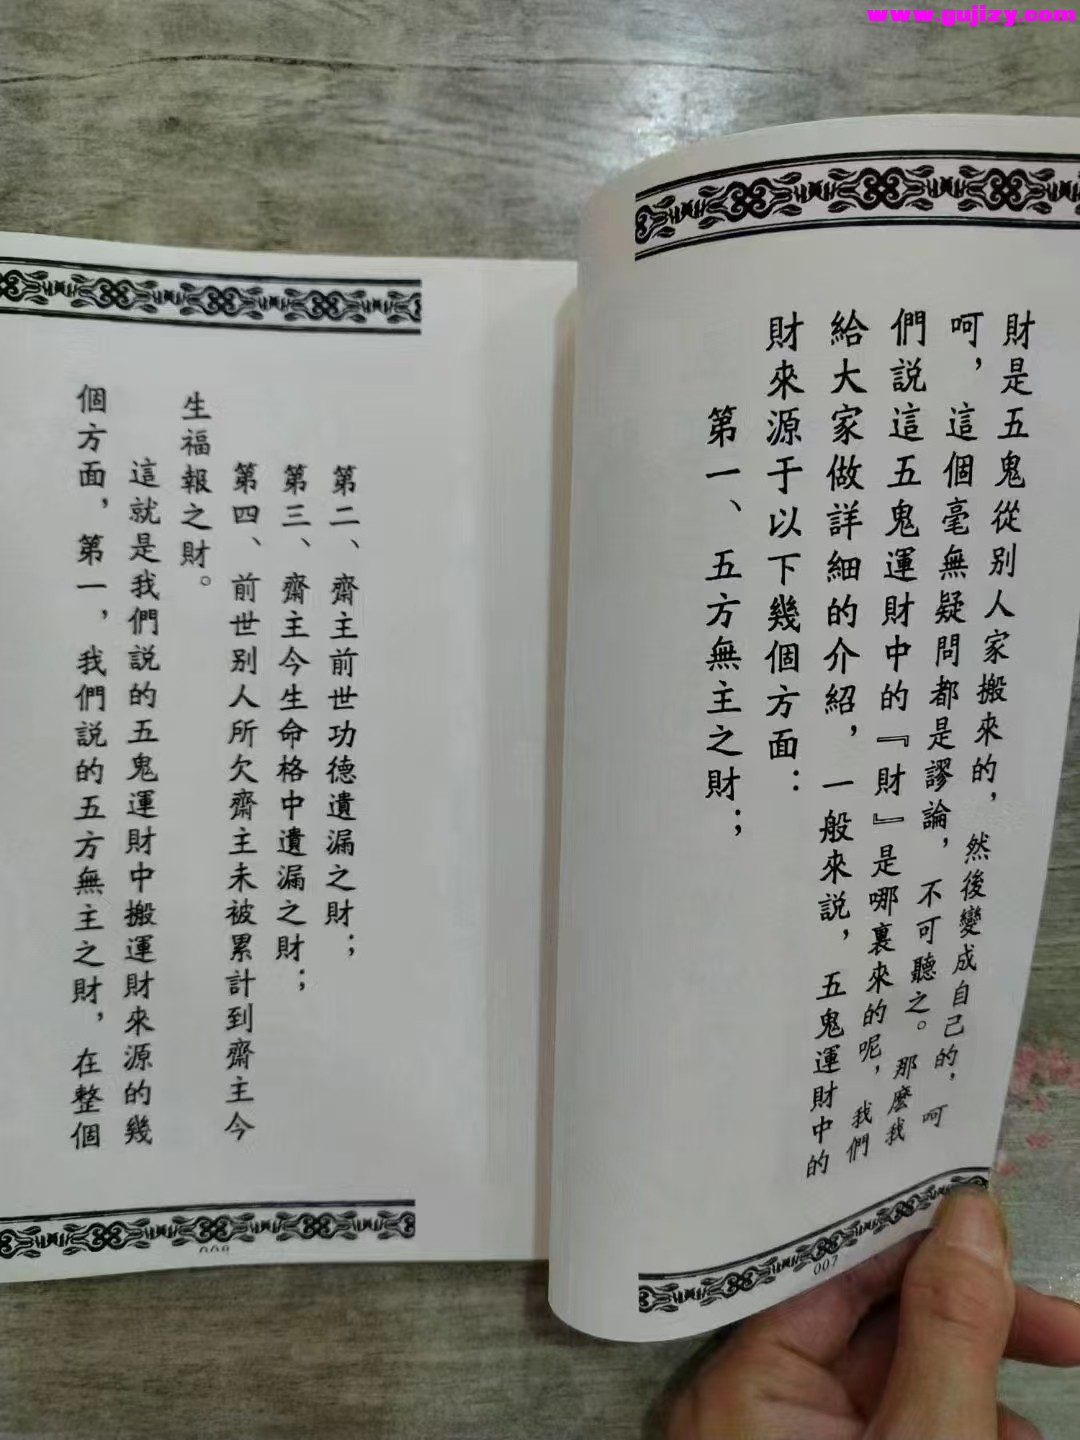 www.gujizy.com
財是五鬼從別人家搬來的，然後變成自己的，呵
呵，這個毫無疑問都是謬論，不可聽之。那麼我
們說這五鬼運財中的『財』是哪裏來的呢，我們
給大家做詳細的介紹，一般來説，五鬼運財中的
財來源于以下幾個方面：
第一、五方無主之財；
007
第二、齋主前世功德遺漏之財；
第三、齋主今生命格中遺漏之財；
第四、前世别人所欠齋主未被累計到齋主今
生福報之財。
這就是我們説的五鬼運財中搬運財來源的幾
個方面，第一，我們説的五方無主之財，在整個
008